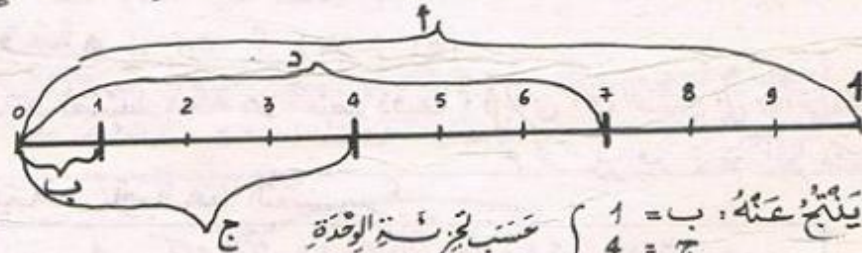 أ
د
0 1 2 3 4 5 6 7 8 9 1
ب
ج
يَنْتُجُ عَنْهُ: ب = 1
ج = 4
حَسَبَ تَجْزِئَةِ الوِحْدَةِ